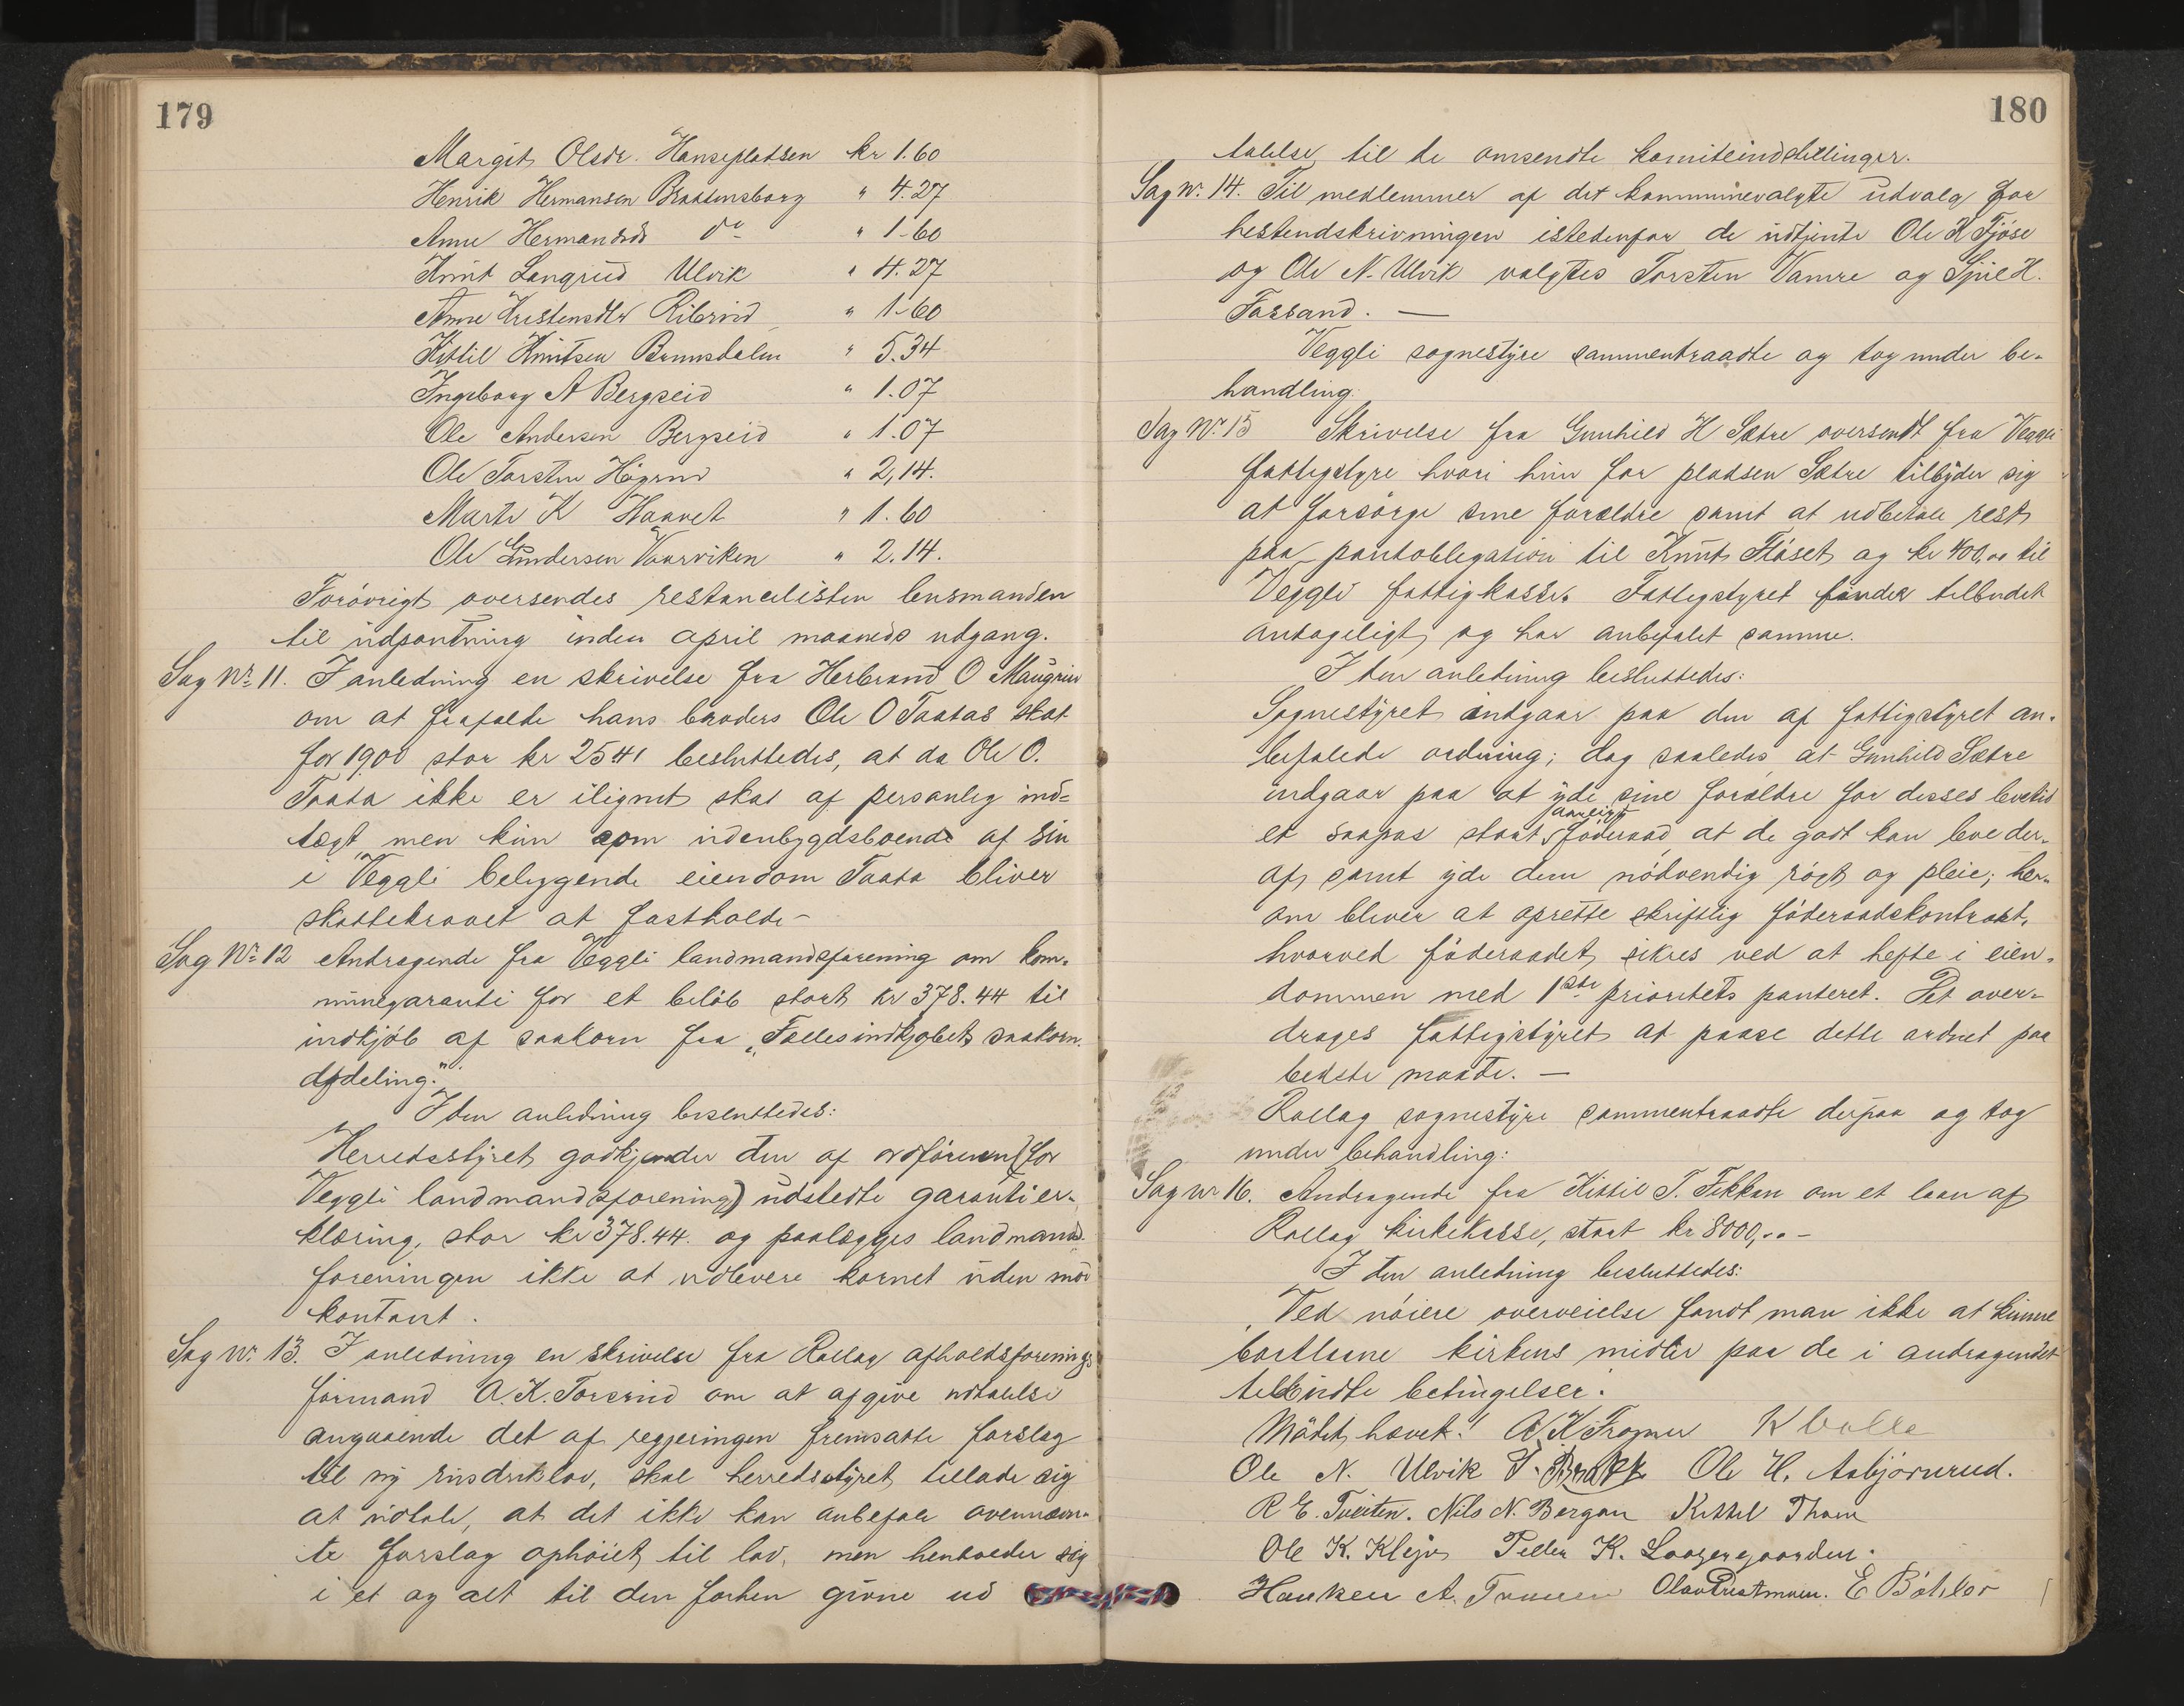 179
Margit Olsdr. Hanseplatsen kr 1.60
Henrik Hermansen Braatensborg " 4.27
Anne Hermandsdr do " 1.60
Knut Langrud Ulvik " 4.27
Anne Kristensdtr Riberud " 1.60
Kittil Knutsen Brunsdalen " 5.34
Ingeborg A Bergseid " 1.07
Ole Andersen Bergseid " 1.07
Ole Torsten Högrud " 2,14.
Marte K Haavet " 1.60
Ole Gundersen Vaarviken " 2.14.
Forövrigt oversendes restancelisten lensmanden
til udpantning inden april maaneds udgang.
Sag Nr. 11. I anledning en skrivelse fra Herbrand O Maugrud
om at frafalde hans broders Ole O Taatas skat
for 1900 stor kr 25 41 besluttedes, at da Ole O.
Taata ikke er ilignet skat af personlig ind=
tægt men kun som udenbygdsboende af sin
i Veggli beliggende eiendom Taata bliver
skattekravet at fastholde-
Sag Nr. 12 Andragende fra Veggli landmandsforening om kom-
munegaranti for et belöb stort kr 378.44 til
indkjöb af saakorn fra „Fællesindkjøbets saakorn
afdeling."
I den anledning besluttedes:
Herredsstyret godkjender den af ordföreren (for
Veggli landmandsforening) udstedte garantier-
klæring, stor kr 378.44. og paalægges landmands
foreningen ikke at udlevere kornet uden mod
kontant.
Sag Nr. 13. I anledning en skrivelse fra Rollag afholdsforenings
formand A. K. Torsrud om at afgive udtalelse
angaaende det af regjeringen fremsatte forslag
til ny rusdriklov, skal herredsstyret tillade sig
at udtale, at det ikke kan anbefale ovennævn-
te forslag ophöiet til lov, men henholder sig
i et og alt til den forhen givne ud
180
talelse til de omsendte komiteindstillinger.
Sag Nr. 14. Til medlemmer af det kommunevalgte udvalg for
hesteudskrivningen istedenfor de udtjente Ole K Fjöse
og Ole N. Ulvik valgtes Torsten Vamre og Sjul H.
Fossand. —
Veggli sognestyre sammentraadte og tog under be-
handling.
Sag Nr. 15 Skrivelse fra Gunhild H Sætre oversendt fra Veggli
fattigstyre hvori hun for pladsen Sætre tilbyder sig
at forsörge sine forældre samt at udbetale rest
paa pantobligation til Knut Flöset og kr 400,00 til
Veggli fattigkasse. Fattigstyret finder tilbudet
antageligt og har anbefalet samme.
I den anledning besluttedes:
Sognestyret indgaar paa den af fattigstyret an-
befalede ordning; dog saaledes, at Gunhild Sætre
indgaar paa at yde sine forældre for disses levetid
et saapas stort aarligt föderaad at de godt kan leve der-
af, samt yde dem nödvendig rögt og pleie; her-
om bliver at oprette skriftlig föderaadskontrakt,
hvorved föderaadet sikres ved at hefte i eien-
dommen med 1ste prioritets panteret. Det over-
drages fattigstyret at paase dette ordnet paa
bedste maade. —
Rollag sognestyre sammentraadte derpaa og tog
under behandling:
Sag Nr 16. Andragende fra Kittil T. Fekkan om et laan af
Rollag kirkekasse, stort kr 8000,.. -
I den anledning besluttedes:
Ved nöiere overveielse fandt man ikke at kunne
bortlaane kirkens midler paa de i andragendet
tilbudte betingelser.
Mödet hævet! A K Fromer K
Ole N. Ulvik T. Ole H. Asbjörnrud.
R E. Tveiten. Nils N. Bergan Kittil Thom
Ole K. Peller K. Laagesgaarden.
Haaken A. Olav Prestmoen. E